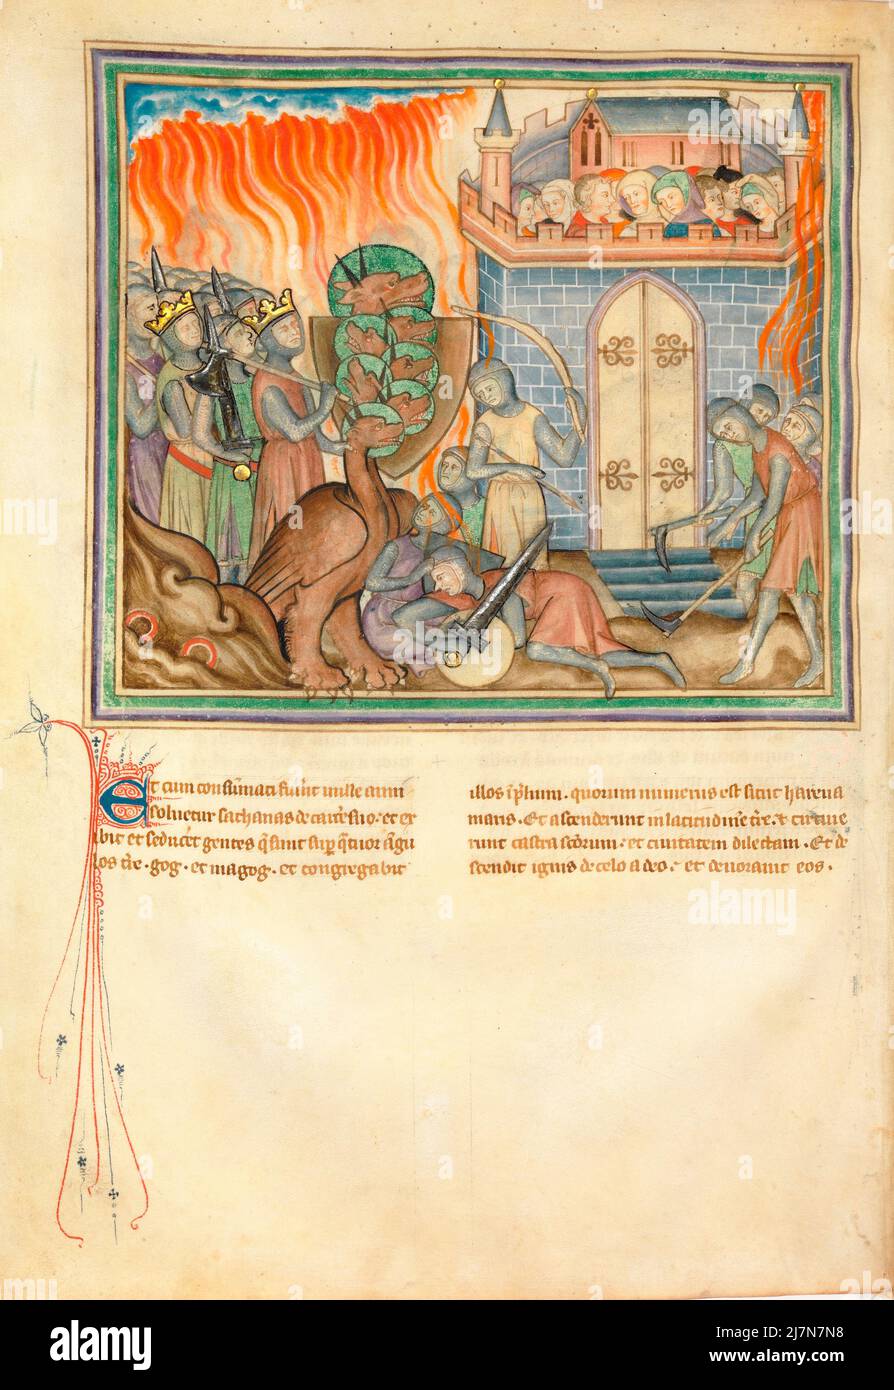 Et cum consumati fuerint mille anni
soluetur sathanas de carcere suo · et ex
ibit et seducet gentes q̄ sunt sup̄ q̄tuor angu
los tr̄e · gog · et magog · et congregabit
illos ī p̄lium · quorum numerus est sicut harena
maris · Et ascenderunt in latitudinē tr̄e · et circuie
runt castra sc̄orum · et ciuitatem dilectam · Et de
scendit ignis de celo a deo · et deuorauit eos ·
alamy
Image ID: 2J7N7N8
www.alamy.com